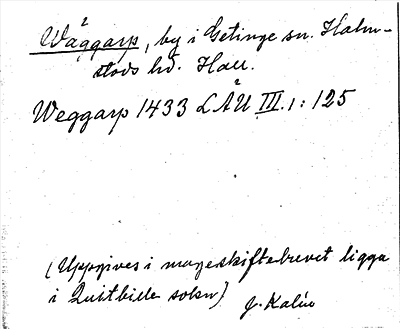 Wäggarp, by i Getinge sn. Halm-
stads hd. Hall.
Weggarp 1433 LÄU III. 1 : 125
(Uppgives i mageskiftebrevet ligga
i Quitbille sokn)
J. Kalén